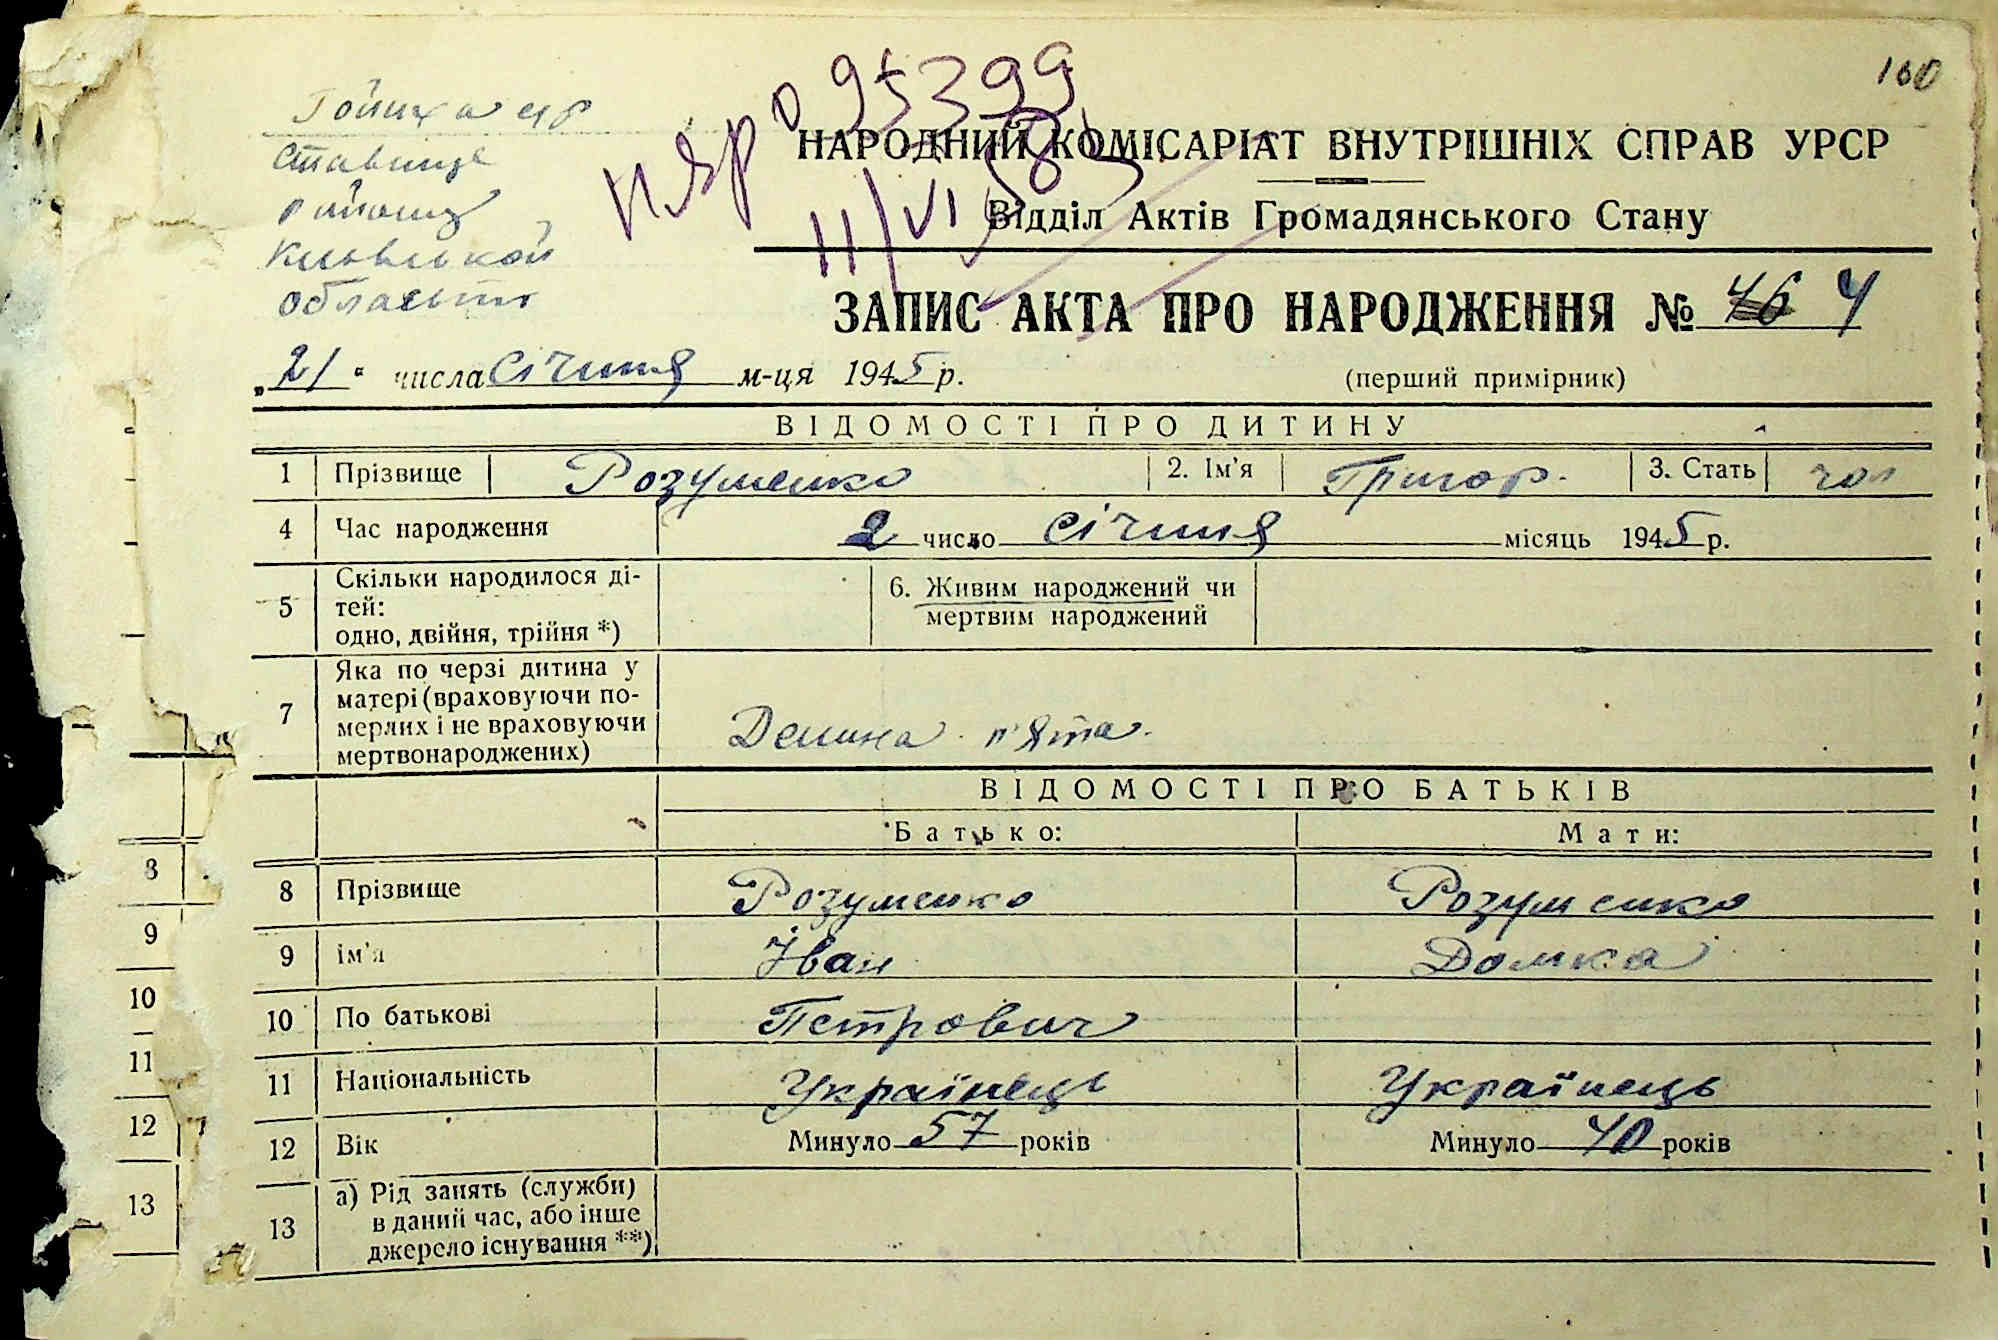 100
НАРОДНИЙ КОМІСАРІАТ ВНУТРІШНІХ СПРАВ УРСР
Відділ Актів Громадянського Стану
095399
11/VI 58
Ставище
району
Київської
області
ЗАПИС АКТА ПРО НАРОДЖЕННЯ № 46 4
„21“ числа січння м-ця 1945 р.
(перший примірник)
ВІДОМОСТІ ПРО ДИТИНУ
1 Прізвище Розуменко 2. Ім'я Григор. 3. Стать чол
4 Час народження 2 число січння місяць 1945 р.
5 Скільки народилося ді-
тей:
одно, двійня, трійня *)
6. Живим народжений чи
мертвим народжений
7 Яка по черзі дитина у
матері (враховуючи по-
мерлих і не враховуючи
мертвонароджених)
п'ята.
ВІДОМОСТІ ПРО БАТЬКІВ
Батько: Мати:
8 Прізвище Розуменко Розуменко
9 Ім'я Іван Домка
10 По батькові Петрович
11 Національність Українець Українець
12 Вік Минуло 57 років Минуло 40 років
13 а) Рід занять (служби)
в даний час, або інше
джерело існування **)
8
9
10
11
12
13